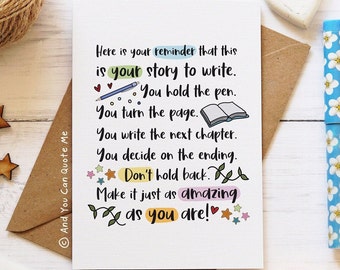 Here is your reminder that this
is your story to write.
You hold the pen.
You turn the page.
You write the next chapter.
You decide on the ending.
Don't hold back.
Make it just as amazing
as you are!
© And You Can Quote Me